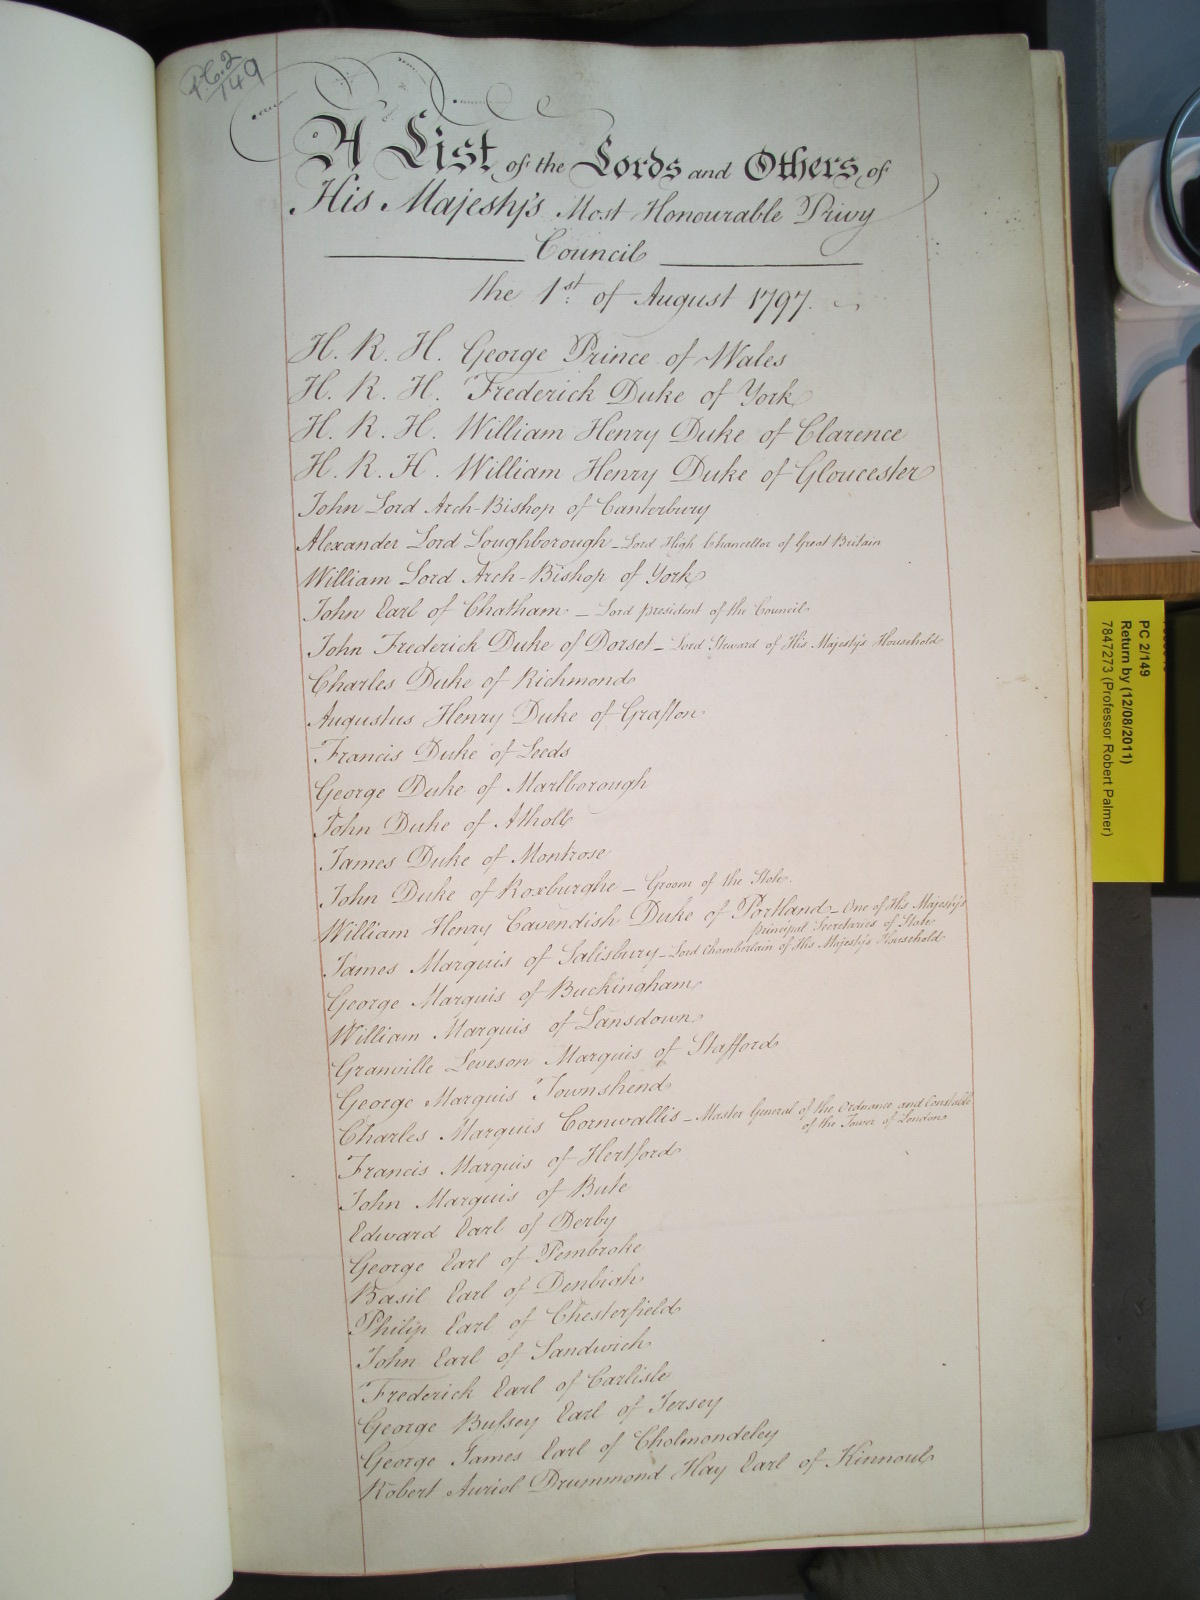 P.C.2
149
A List of the Lords and Others of
His Majesty's Most Honourable Privy
Council
the 1st of August 1797.
H. R. H. George Prince of Wales
H. R. H. Frederick Duke of York
H. R. H. William Henry Duke of Clarence
H. R. H. William Henry Duke of Gloucester
John Lord Arch-Bishop of Canterbury
Alexander Lord Loughborough - Lord High Chancellor of Great Britain
William Lord Arch-Bishop of York
John Earl of Chatham - Lord president of the Council
John Frederick Duke of Dorset - Lord Steward of His Majesty's Household
Charles Duke of Richmond
Augustus Henry Duke of Grafton
Francis Duke of Leeds
George Duke of Marlborough
John Duke of Atholl
James Duke of Montrose
John Duke of Roxburghe - Groom of the Stole.
William Henry Cavendish Duke of Portland - One of His Majesty's
principal Secretaries of State
James Marquis of Salisbury - Lord Chamberlain of His Majesty's Household
George Marquis of Buckingham
William Marquis of Lansdown
Granville Leveson Marquis of Stafford
George Marquis Townshend
Charles Marquis Cornwallis - Master General of the Ordnance and Constable
of the Tower of London
Francis Marquis of Hertford
John Marquis of Bute
Edward Earl of Derby
George Earl of Pembroke
Basil Earl of Denbigh
Philip Earl of Chesterfield
John Earl of Sandwich
Frederick Earl of Carlisle
George Bussey Earl of Jersey
George James Earl of Cholmondeley
Robert Auriol Drummond Hay Earl of Kinnoul
PC 2/149
Return by (12/08/2011)
7847273 (Professor Robert Palmer)